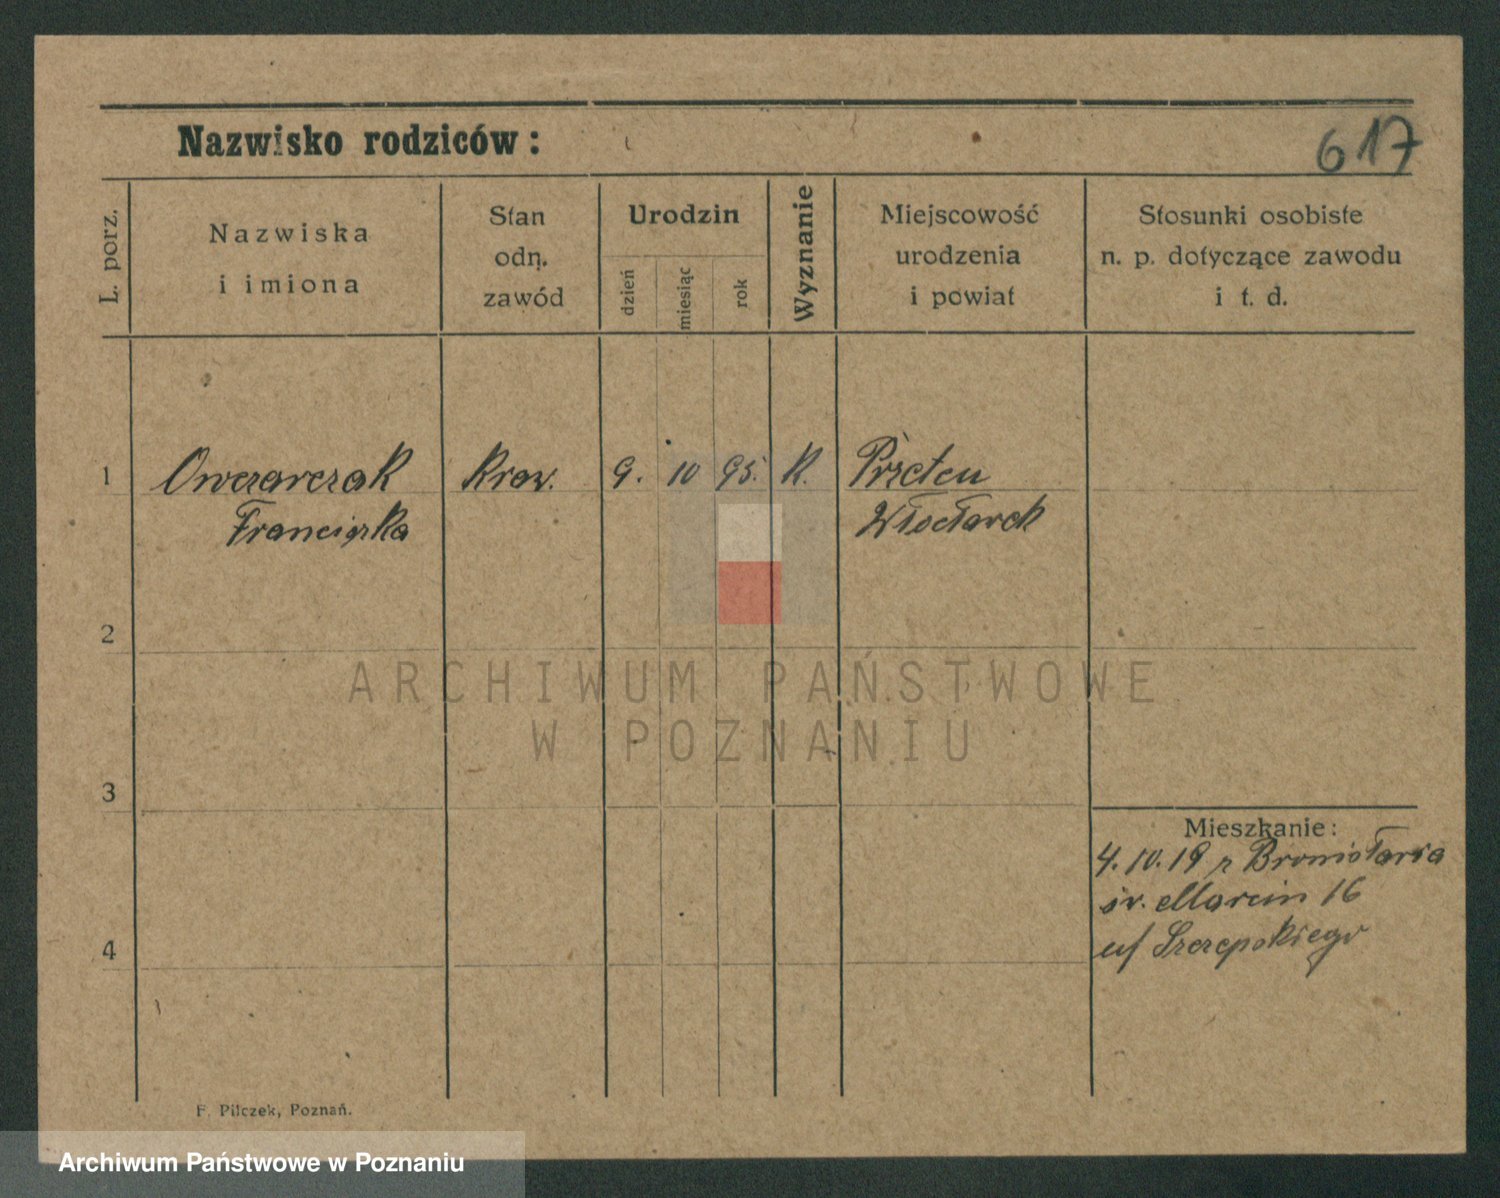 Nazwisko rodziców:
617
L. porz.
Nazwiska
i imiona
Stan
odn.
zawód
Urodzin
dzień
miesiąc
rok
Wyznanie
Miejscowość
urodzenia
i powiat
Stosunki osobiste
n. p. dotyczące zawodu
i t. d.
1 Owczarczak Kraw. 9. 10 95. K.
Franciszka Włocławek
2
3
4
Mieszkanie:
4.10.19 z Bronisławia
św. Marcin 16
u/ Szczepskiego
F. Pilczek, Poznań.
ARCHIWUM PAŃSTWOWE
W POZNANIU
Archiwum Państwowe w Poznaniu